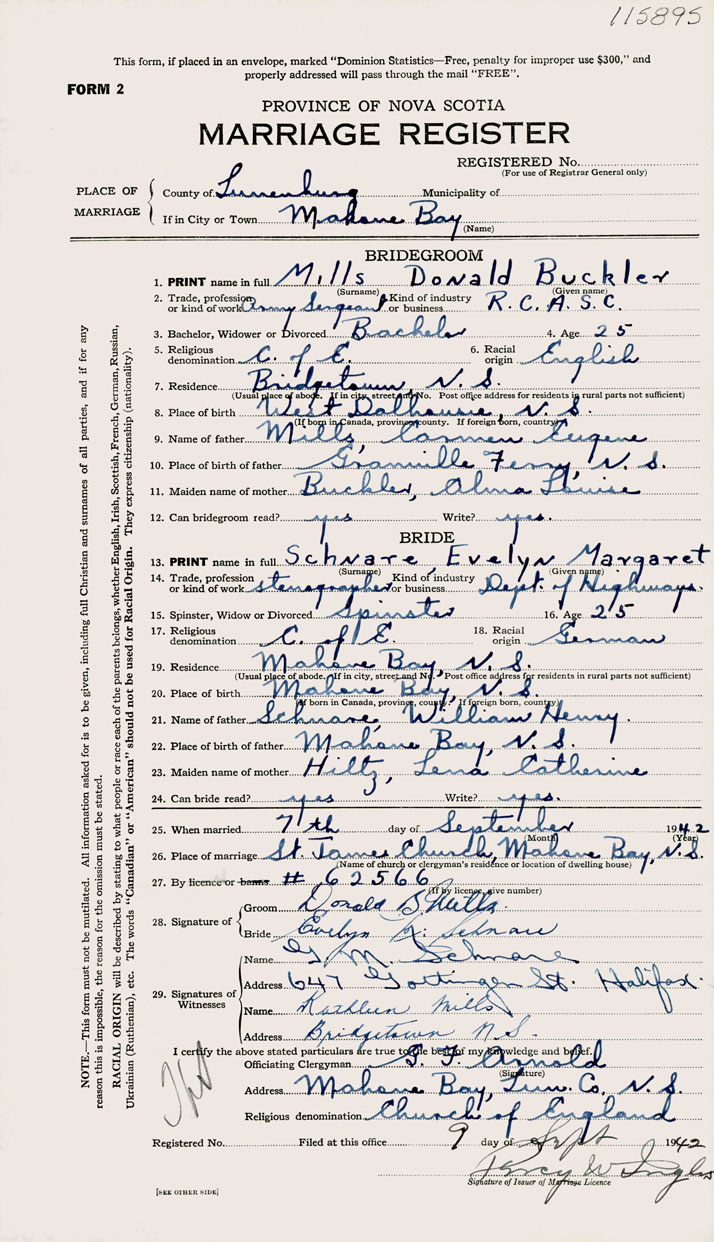 115895
This form, if placed in an envelope, marked "Dominion Statistics—Free, penalty for improper use $300," and
properly addressed will pass through the mail "FREE".
FORM 2
PROVINCE OF NOVA SCOTIA
MARRIAGE REGISTER
REGISTERED No.
(For use of Registrar General only)
PLACE OF MARRIAGE
County of Lunenburg Municipality of
If in City or Town Mahone Bay
(Name)
BRIDEGROOM
1. PRINT name in full Mills Donald Buckler
(Surname) (Given name)
2. Trade, profession or kind of work Army Sergeant Kind of industry or business R.C.A.S.C.
3. Bachelor, Widower or Divorced Bachelor 4. Age 25
5. Religious denomination C. of E. 6. Racial origin English
7. Residence Bridgetown, N. S.
(Usual place of abode. If in city, street and No. Post office address for residents in rural parts not sufficient)
8. Place of birth West Dalhousie, N. S.
(If born in Canada, province, county. If foreign born, country)
9. Name of father Mills, Carmen Eugene
10. Place of birth of father Granville Ferry, N. S.
11. Maiden name of mother Buckler, Alma Louise
12. Can bridegroom read? yes Write? yes.
BRIDE
13. PRINT name in full Schnare Evelyn Margaret
(Surname) (Given name)
14. Trade, profession or kind of work stenographer Kind of industry or business Dept. of Highways.
15. Spinster, Widow or Divorced Spinster 16. Age 25
17. Religious denomination C. of E. 18. Racial origin German
19. Residence Mahone Bay, N. S.
(Usual place of abode. If in city, street and No. Post office address for residents in rural parts not sufficient)
20. Place of birth Mahone Bay, N. S.
(If born in Canada, province, county. If foreign born, country)
21. Name of father Schnare, William Henry.
22. Place of birth of father Mahone Bay, N. S.
23. Maiden name of mother Hiltz, Lena Catherine
24. Can bride read? yes Write? yes.
25. When married 7th day of September 1942
(Month) (Year)
26. Place of marriage St. James Church, Mahone Bay, N.S.
(Name of church or clergyman's residence or location of dwelling house)
27. By licence or banns # 62566
(If by licence, give number)
28. Signature of
Groom Donald B. Mills.
Bride Evelyn M. Schnare
29. Signatures of Witnesses
Name G. M. Schnare
Address 647 Gottingen St. Halifax.
Name Kathleen Mills
Address Bridgetown N.S.
I certify the above stated particulars are true to the best of my knowledge and belief.
Officiating Clergyman G. F. Arnold
(Signature)
Address Mahone Bay, Lun. Co. N. S.
Religious denomination Church of England
Registered No. Filed at this office 9 day of Sept 1942
Percy W Ingles
Signature of Issuer of Marriage Licence
[SEE OTHER SIDE]
NOTE.—This form must not be mutilated. All information asked for is to be given, including full Christian and surnames of all parties, and if for any
reason this is impossible, the reason for the omission must be stated.
RACIAL ORIGIN will be described by stating to what people or race each of the parents belongs, whether English, Irish, Scottish, French, German, Russian,
Ukrainian (Ruthenian), etc. The words "Canadian" or "American" should not be used for Racial Origin. They express citizenship (nationality).